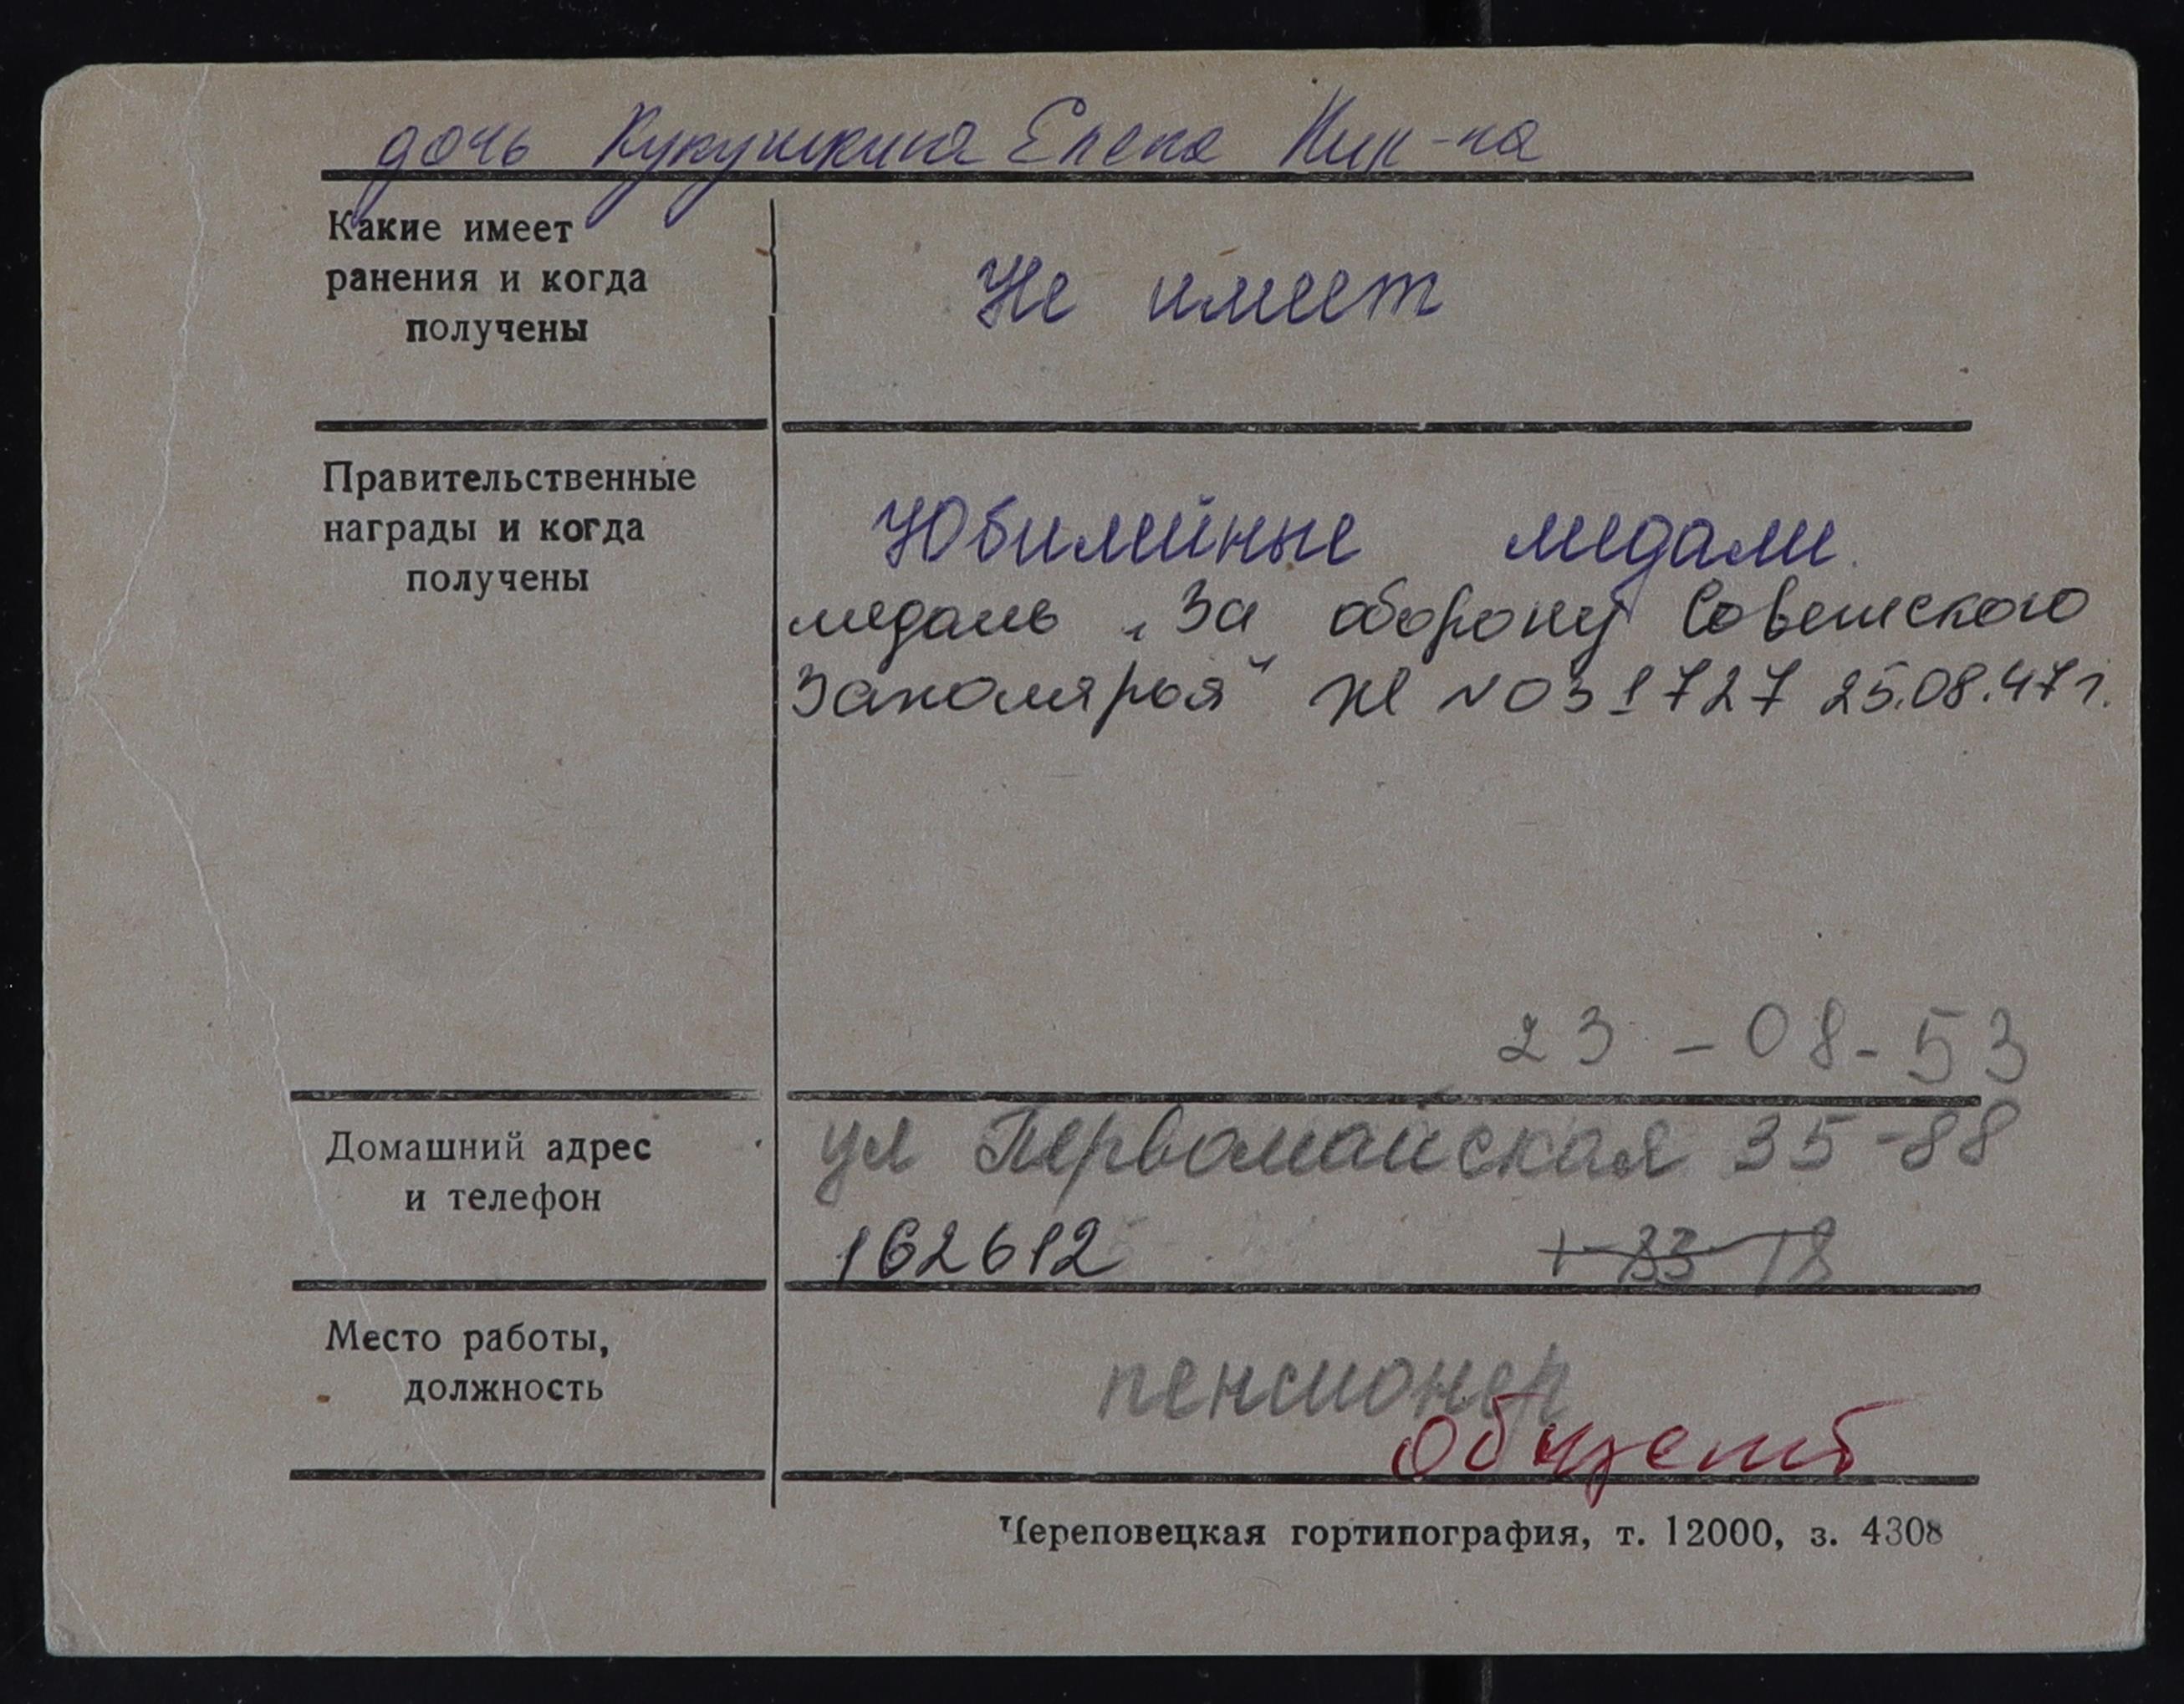 дочь Кукушкина Елена Ник-на
Какие имеет
ранения и когда
получены
Не имеет
Правительственные
награды и когда
получены
Юбилейные медали.
медаль „За оборону Советского
Заполярья" № 031727 25.08.47г.
23-08-53
Домашний адрес
и телефон
ул Первомайская 35-88
162612
Место работы,
должность
пенсионер
Череповецкая гортипография, т. 12000, з. 4308